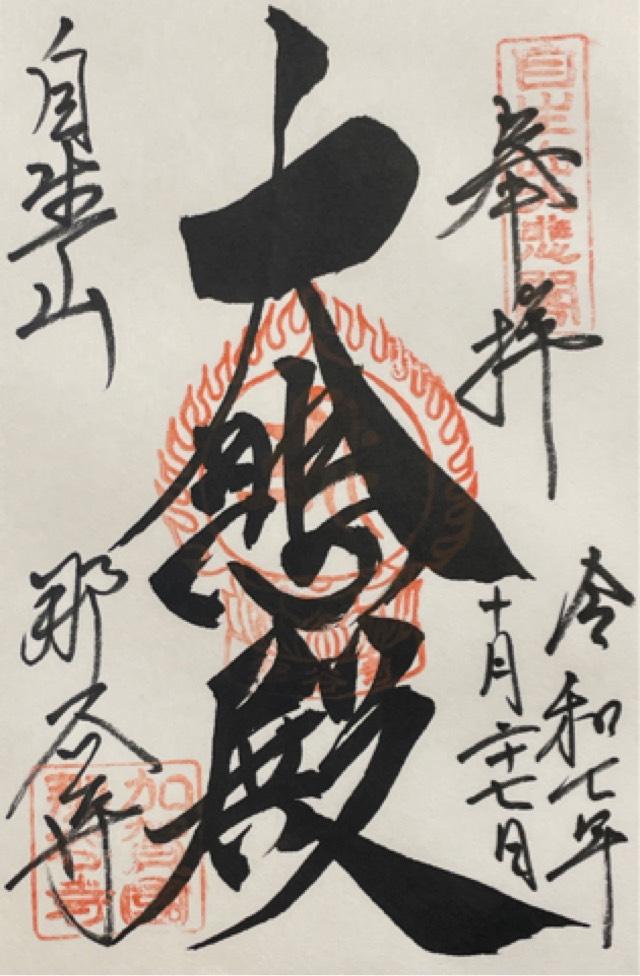 自生山大悲閣
奉拝
令和七年
十月二十七日
大悲殿
自生山
那谷寺
加賀国
那谷寺